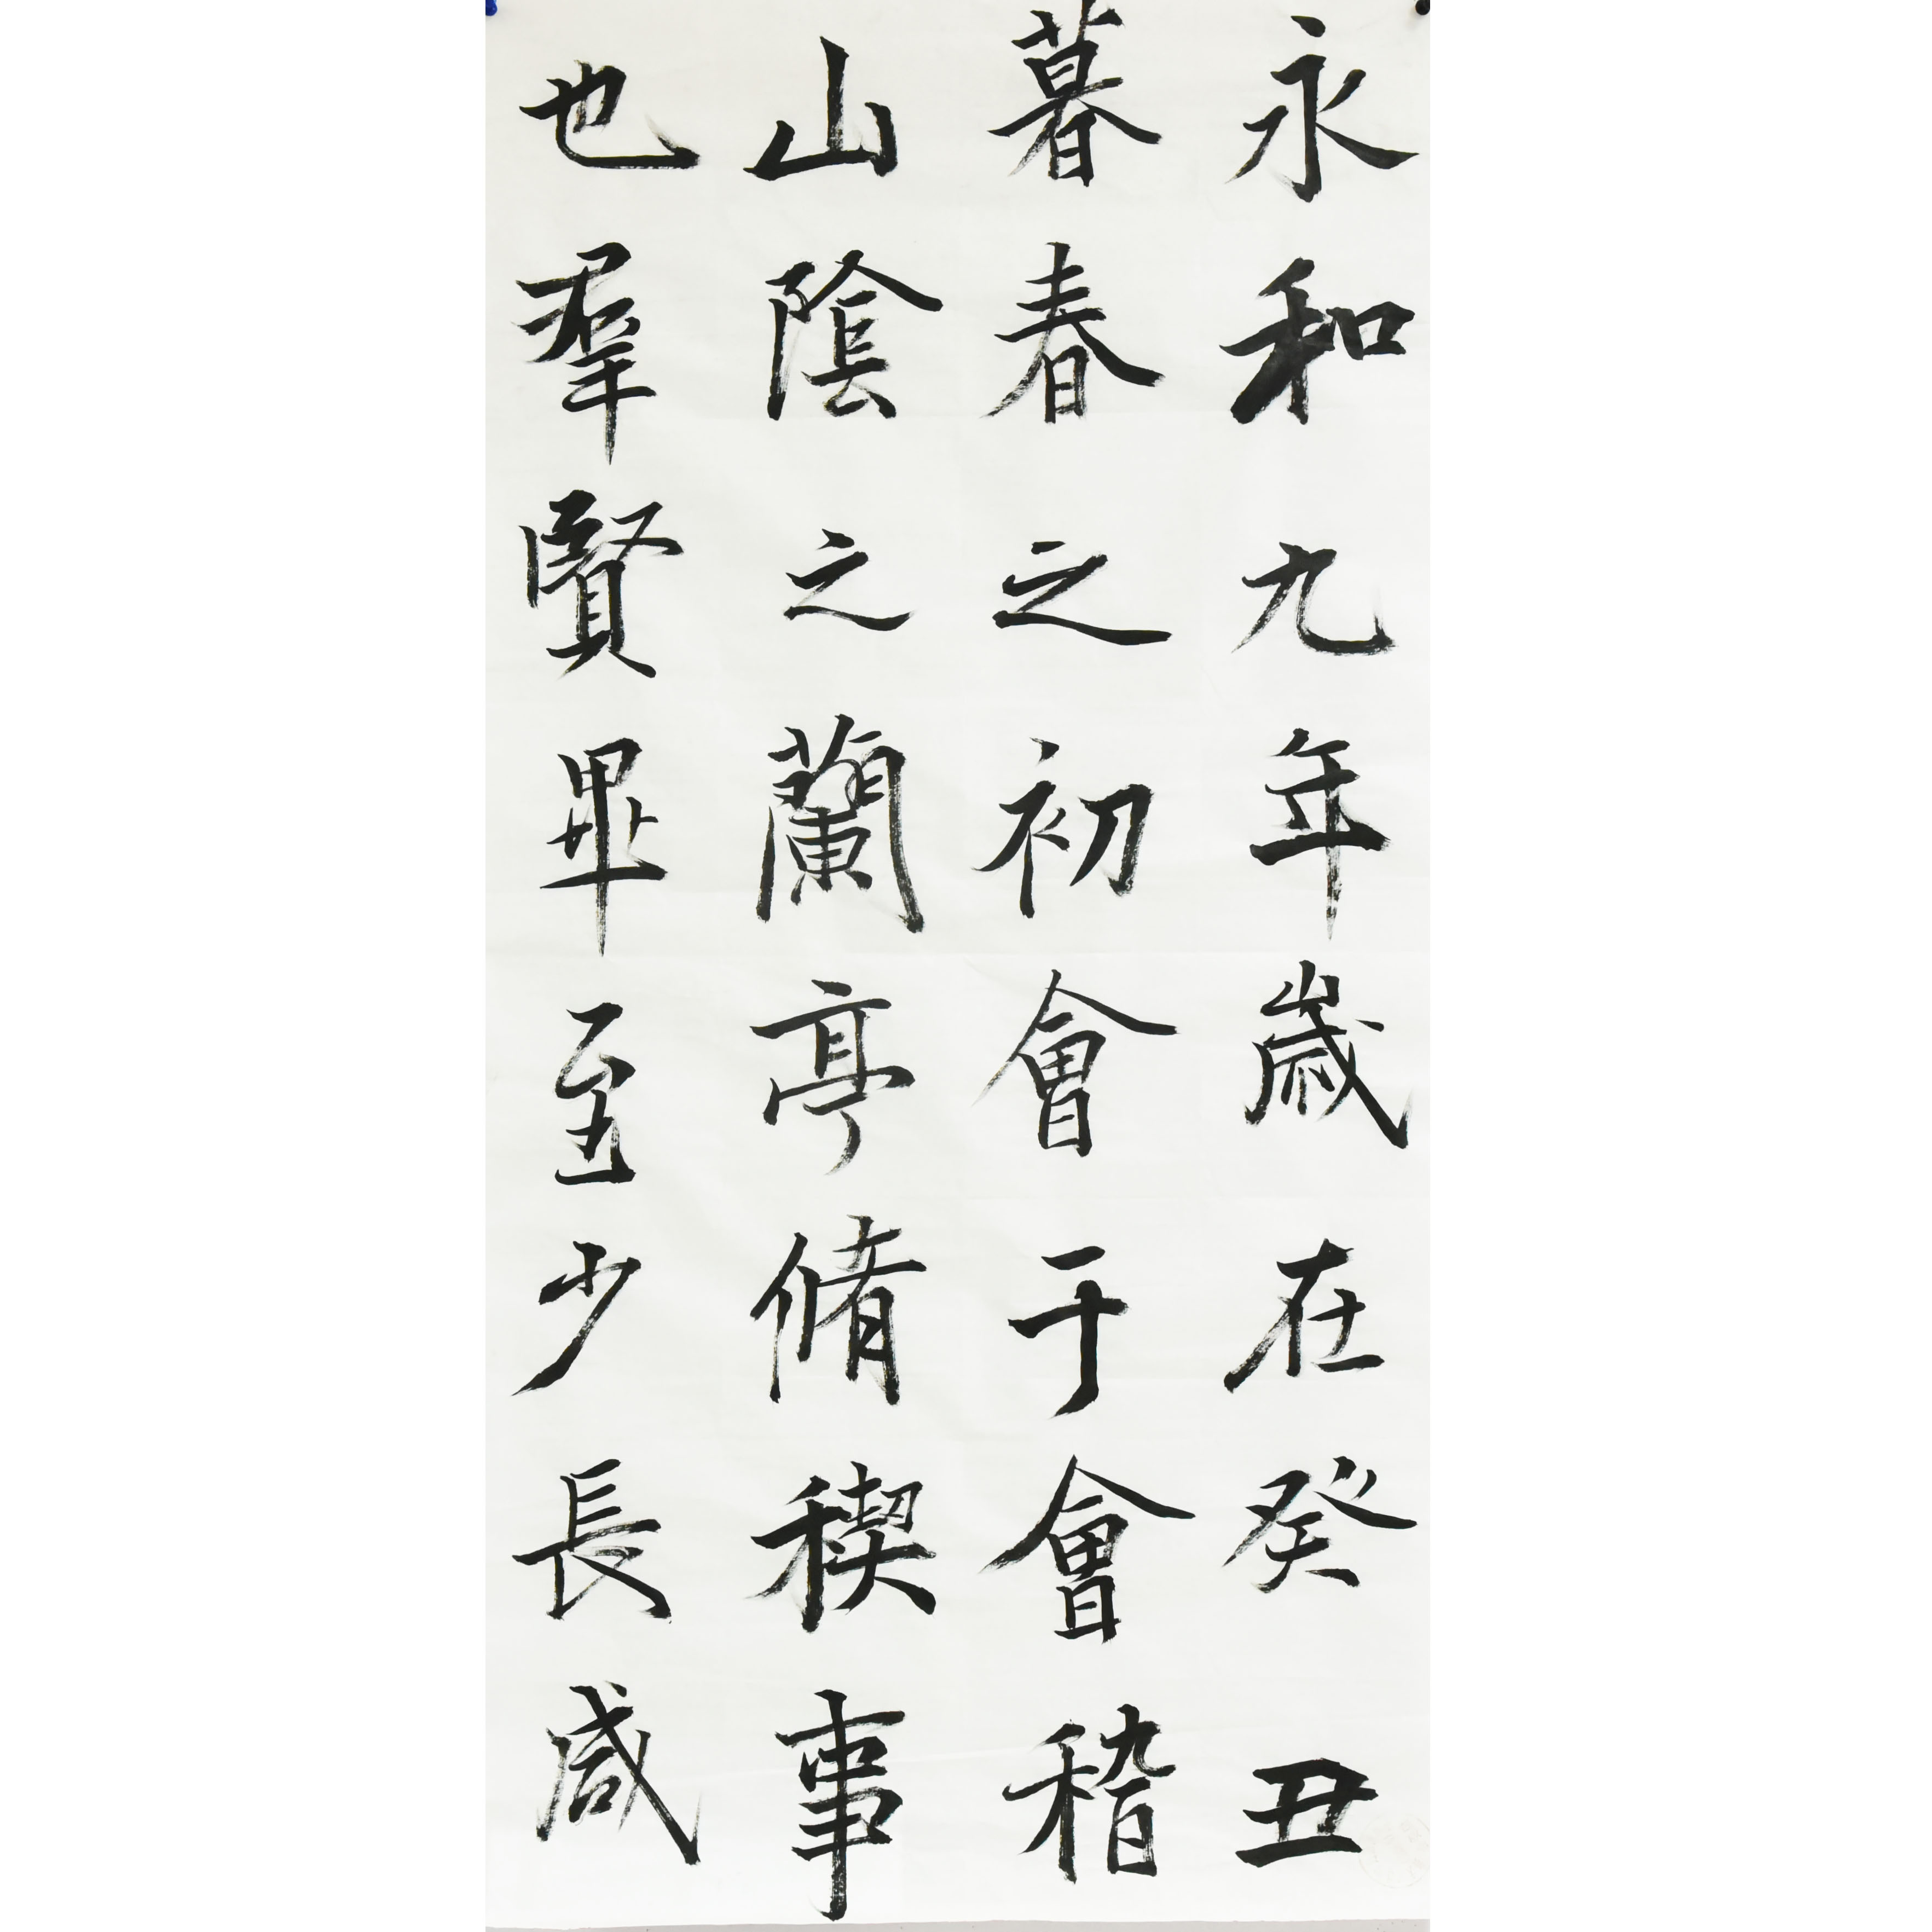 永和九年歲在癸丑
暮春之初會于會稽
山陰之蘭亭脩稧事
也羣賢畢至少長咸